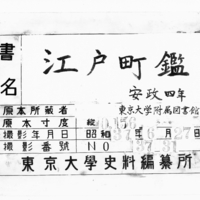 書名
江戸町鑑
安政四年
東京大学附属図書館
原本所蔵者
原本寸度 縦
撮影年月日 昭和 年 月 日
撮影番號 NO
東京大學史料編纂所